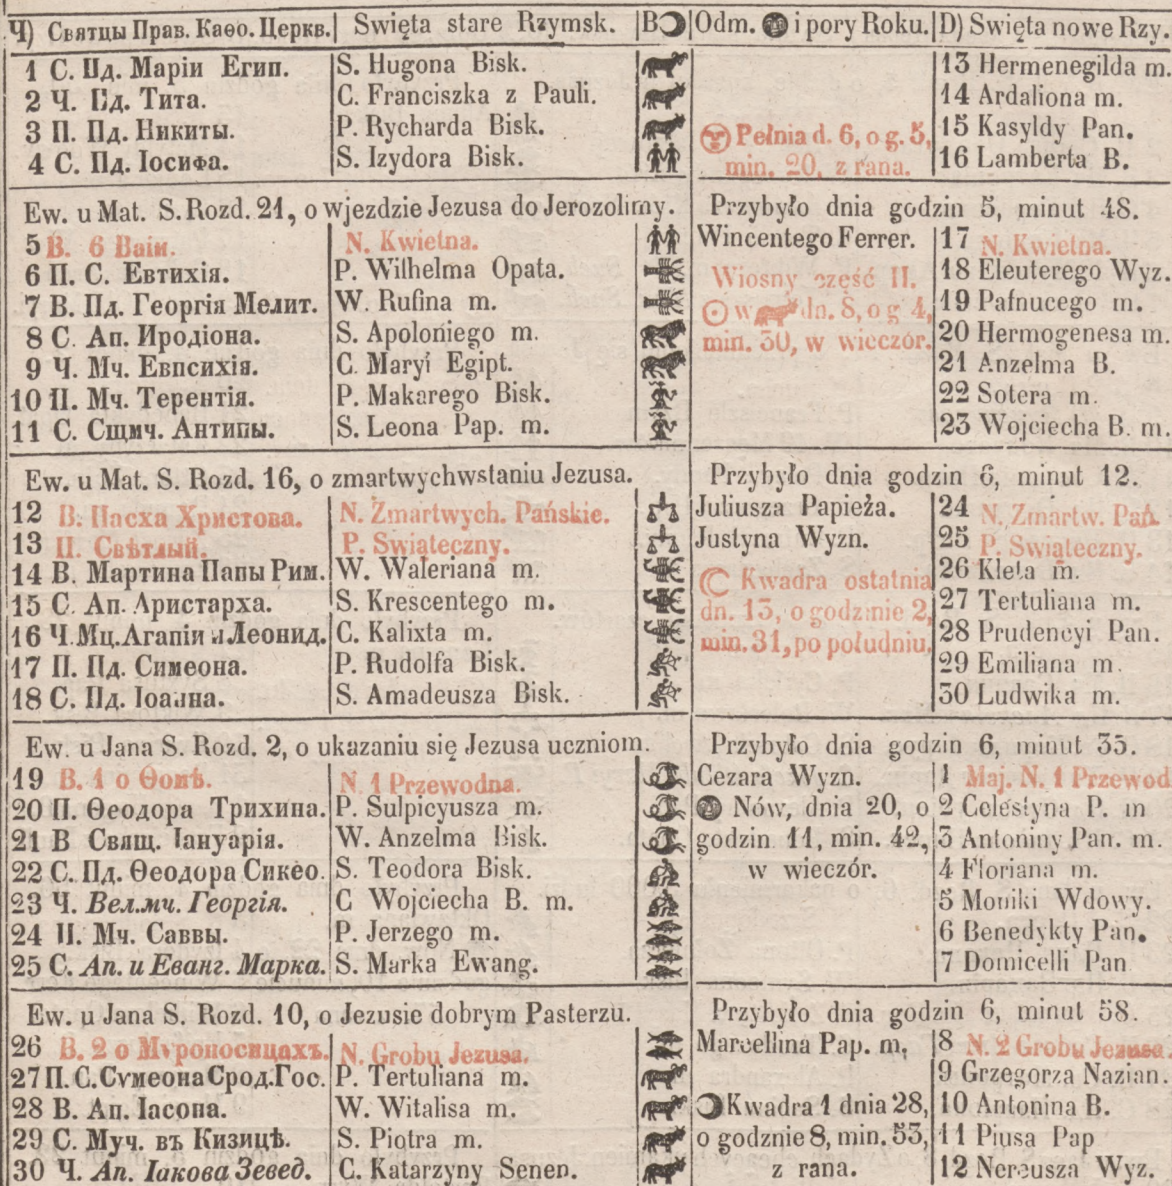 Ч) Святцы Прав. Каѳо. Церкв. | Swięta stare Rzymsk. | B☽ | Odm. i pory Roku. | D) Swięta nowe Rzy.
1 С. Пд. Маріи Егип. | S. Hugona Bisk. | 13 Hermenegilda m.
2 Ч. Пд. Тита. | C. Franciszka z Pauli. | 14 Ardaliona m.
3 П. Пд. Никиты. | P. Rycharda Bisk. | Pełnia d. 6, o g. 5, | 15 Kasyldy Pan.
4 С. Пд. Іосифа. | S. Izydora Bisk. | min. 20, z rana. | 16 Lamberta B.
Ew. u Mat. S. Rozd. 21, o wjezdzie Jezusa do Jerozolimy. | Przybyło dnia godzin 5, minut 48.
5 В. 6 Ваіи. | N. Kwietna. | Wincentego Ferrer. | 17 N. Kwietna.
6 П. С. Евтихія. | P. Wilhelma Opata. | Wiosny część II. | 18 Eleuterego Wyz.
7 В. Пд. Георгія Мелит. | W. Rufina m. | ☉ w dn. 8, o g 4, | 19 Pafnucego m.
8 С. Ап. Иродіона. | S. Apoloniego m. | min. 30, w wieczór. | 20 Hermogenesa m.
9 Ч. Мч. Евпсихія. | C. Maryi Egipt. | 21 Anzelma B.
10 П. Мч. Терентія. | P. Makarego Bisk. | 22 Sotera m.
11 С. Сщмч. Антипы. | S. Leona Pap. m. | 23 Wojciecha B. m.
Ew. u Mat. S. Rozd. 16, o zmartwychwstaniu Jezusa. | Przybyło dnia godzin 6, minut 12.
12 В. Пасха Христова. | N. Zmartwych. Pańskie. | Juliusza Papieża. | 24 N. Zmartw. Pań.
13 П. Свѣтлый. | P. Swiąteczny. | Justyna Wyzn. | 25 P. Swiąteczny.
14 В. Мартина Папы Рим. | W. Waleriana m. | ☾ Kwadra ostatnia | 26 Kleta m.
15 С. Ап. Аристарха. | S. Krescentego m. | dn. 13, o godzinie 2, | 27 Tertuliana m.
16 Ч. Мц. Агапіи и Леонид. | C. Kalixta m. | min. 31, po południu. | 28 Prudencyi Pan.
17 П. Пд. Симеона. | P. Rudolfa Bisk. | 29 Emiliana m.
18 С. Пд. Іоанна. | S. Amadeusza Bisk. | 30 Ludwika m.
Ew. u Jana S. Rozd. 2, o ukazaniu się Jezusa uczniom. | Przybyło dnia godzin 6, minut 35.
19 В. 1 о Ѳомѣ. | N 1 Przewodna. | Cezara Wyzn. | 1 Maj. N. 1 Przewod
20 П. Ѳеодора Трихина. | P. Sulpicyusza m. | Nów, dnia 20, o | 2 Celestyna P. m
21 В Свящ. Іануарія. | W. Anzelma Bisk. | godzin 11, min. 42, | 3 Antoniny Pan. m.
22 С. Пд. Ѳеодора Сикео. | S. Teodora Bisk. | w wieczór. | 4 Floriana m.
23 Ч. Вел.мч. Георгія. | C Wojciecha B. m. | 5 Moniki Wdowy.
24 П. Мч. Саввы. | P. Jerzego m. | 6 Benedykty Pan.
25 С. Ап. и Еванг. Марка. | S. Marka Ewang. | 7 Domicelli Pan
Ew. u Jana S. Rozd. 10, o Jezusie dobrym Pasterzu. | Przybyło dnia godzin 6, minut 58.
26 В. 2 о Мѵроносицахъ. | N. Grobu Jezusa. | Marcellina Pap. m, | 8 N. 2 Grobu Jezusa.
27 П. С. Сѵмеона Срод. Гос. | P. Tertuliana m. | 9 Grzegorza Nazian.
28 В. Ап. Іасона. | W. Witalisa m. | ☽ Kwadra 1 dnia 28, | 10 Antonina B.
29 С. Муч. въ Кизицѣ. | S. Piotra m. | o godznie 8, min. 53, | 11 Piusa Pap
30 Ч. Ап. Іакова Зевед. | C. Katarzyny Senen. | z rana. | 12 Nereusza Wyz.